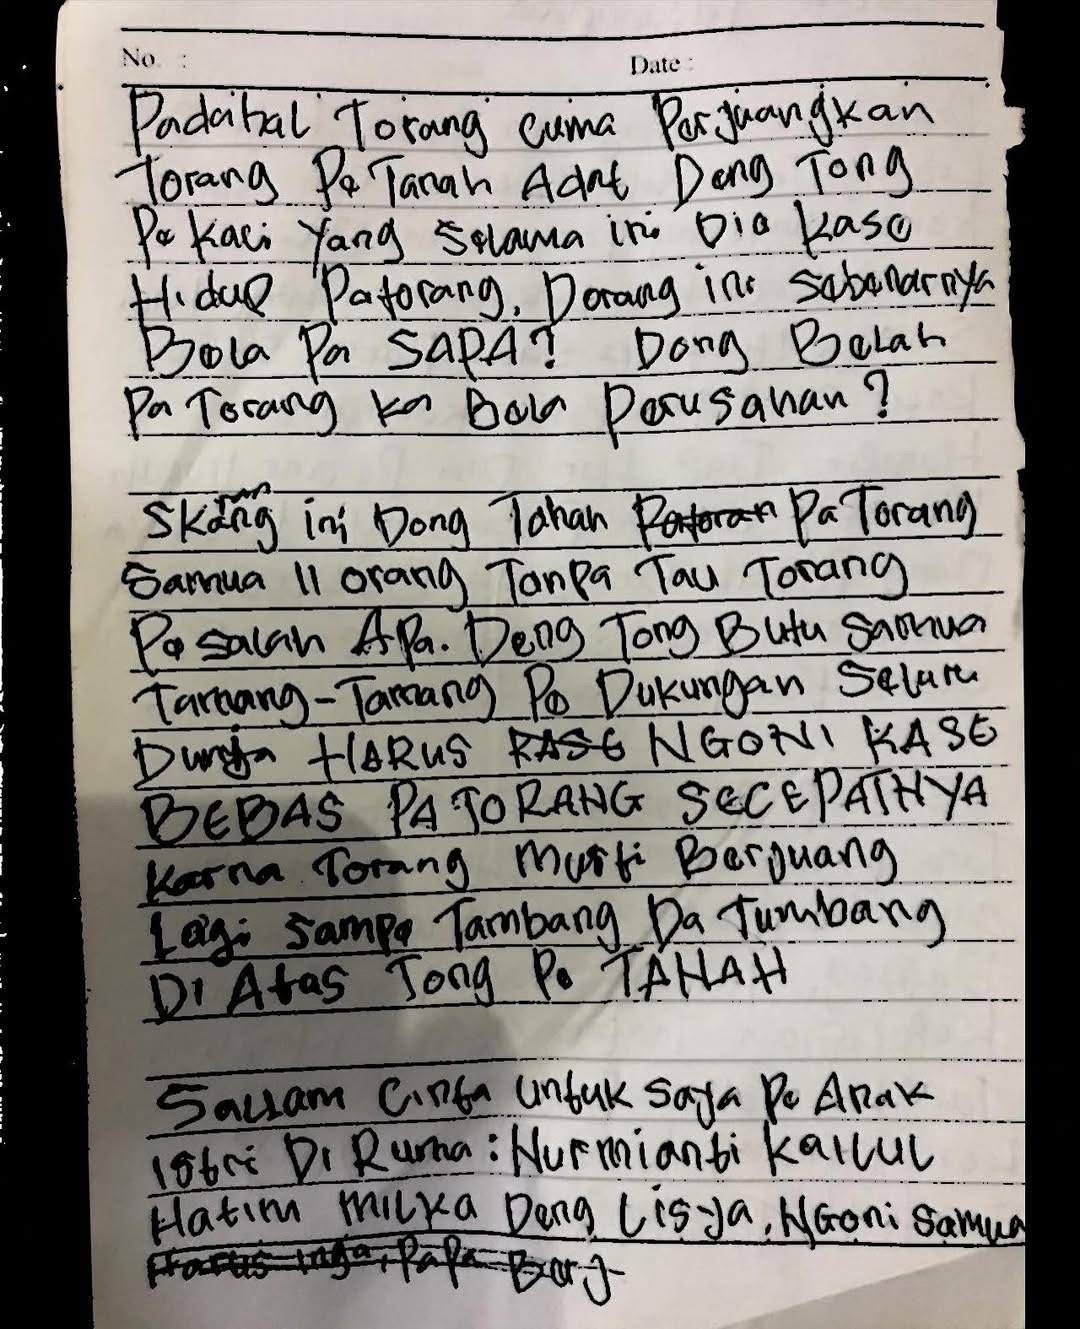 No :
Date :
Padahal Torang cuma Perjuangkan
Torang Pe Tanah Adat Deng Tong
Pe Kali yang Selama ini Dia Kase
Hidup Patorang. Dorang ini sebenarnya
Bela Pa SAPA? Dong Belah
Pa Torang ka Bela Perusahan?
Skarang ini Dong Tahan Patoran Pa Torang
Samua 11 orang Tanpa Tau Torang
Pe salah Apa. Deng Tong Butu Samua
Tamang-Tamang Pe Dukungan Seluru
Dunia HARUS KASE NGONI KASE
BEBAS PA TORANG SECEPATNYA
Karna Torang Musti Berjuang
Lagi sampe Tambang Da Tumbang
Di Atas Tong Pe TANAH
Sallam Cinta untuk saya Pe Anak
Istri Di Ruma : Nurmianti
Hatim MILKA Deng Lisya, NGoni Samua
Harus inga, Papa Berj